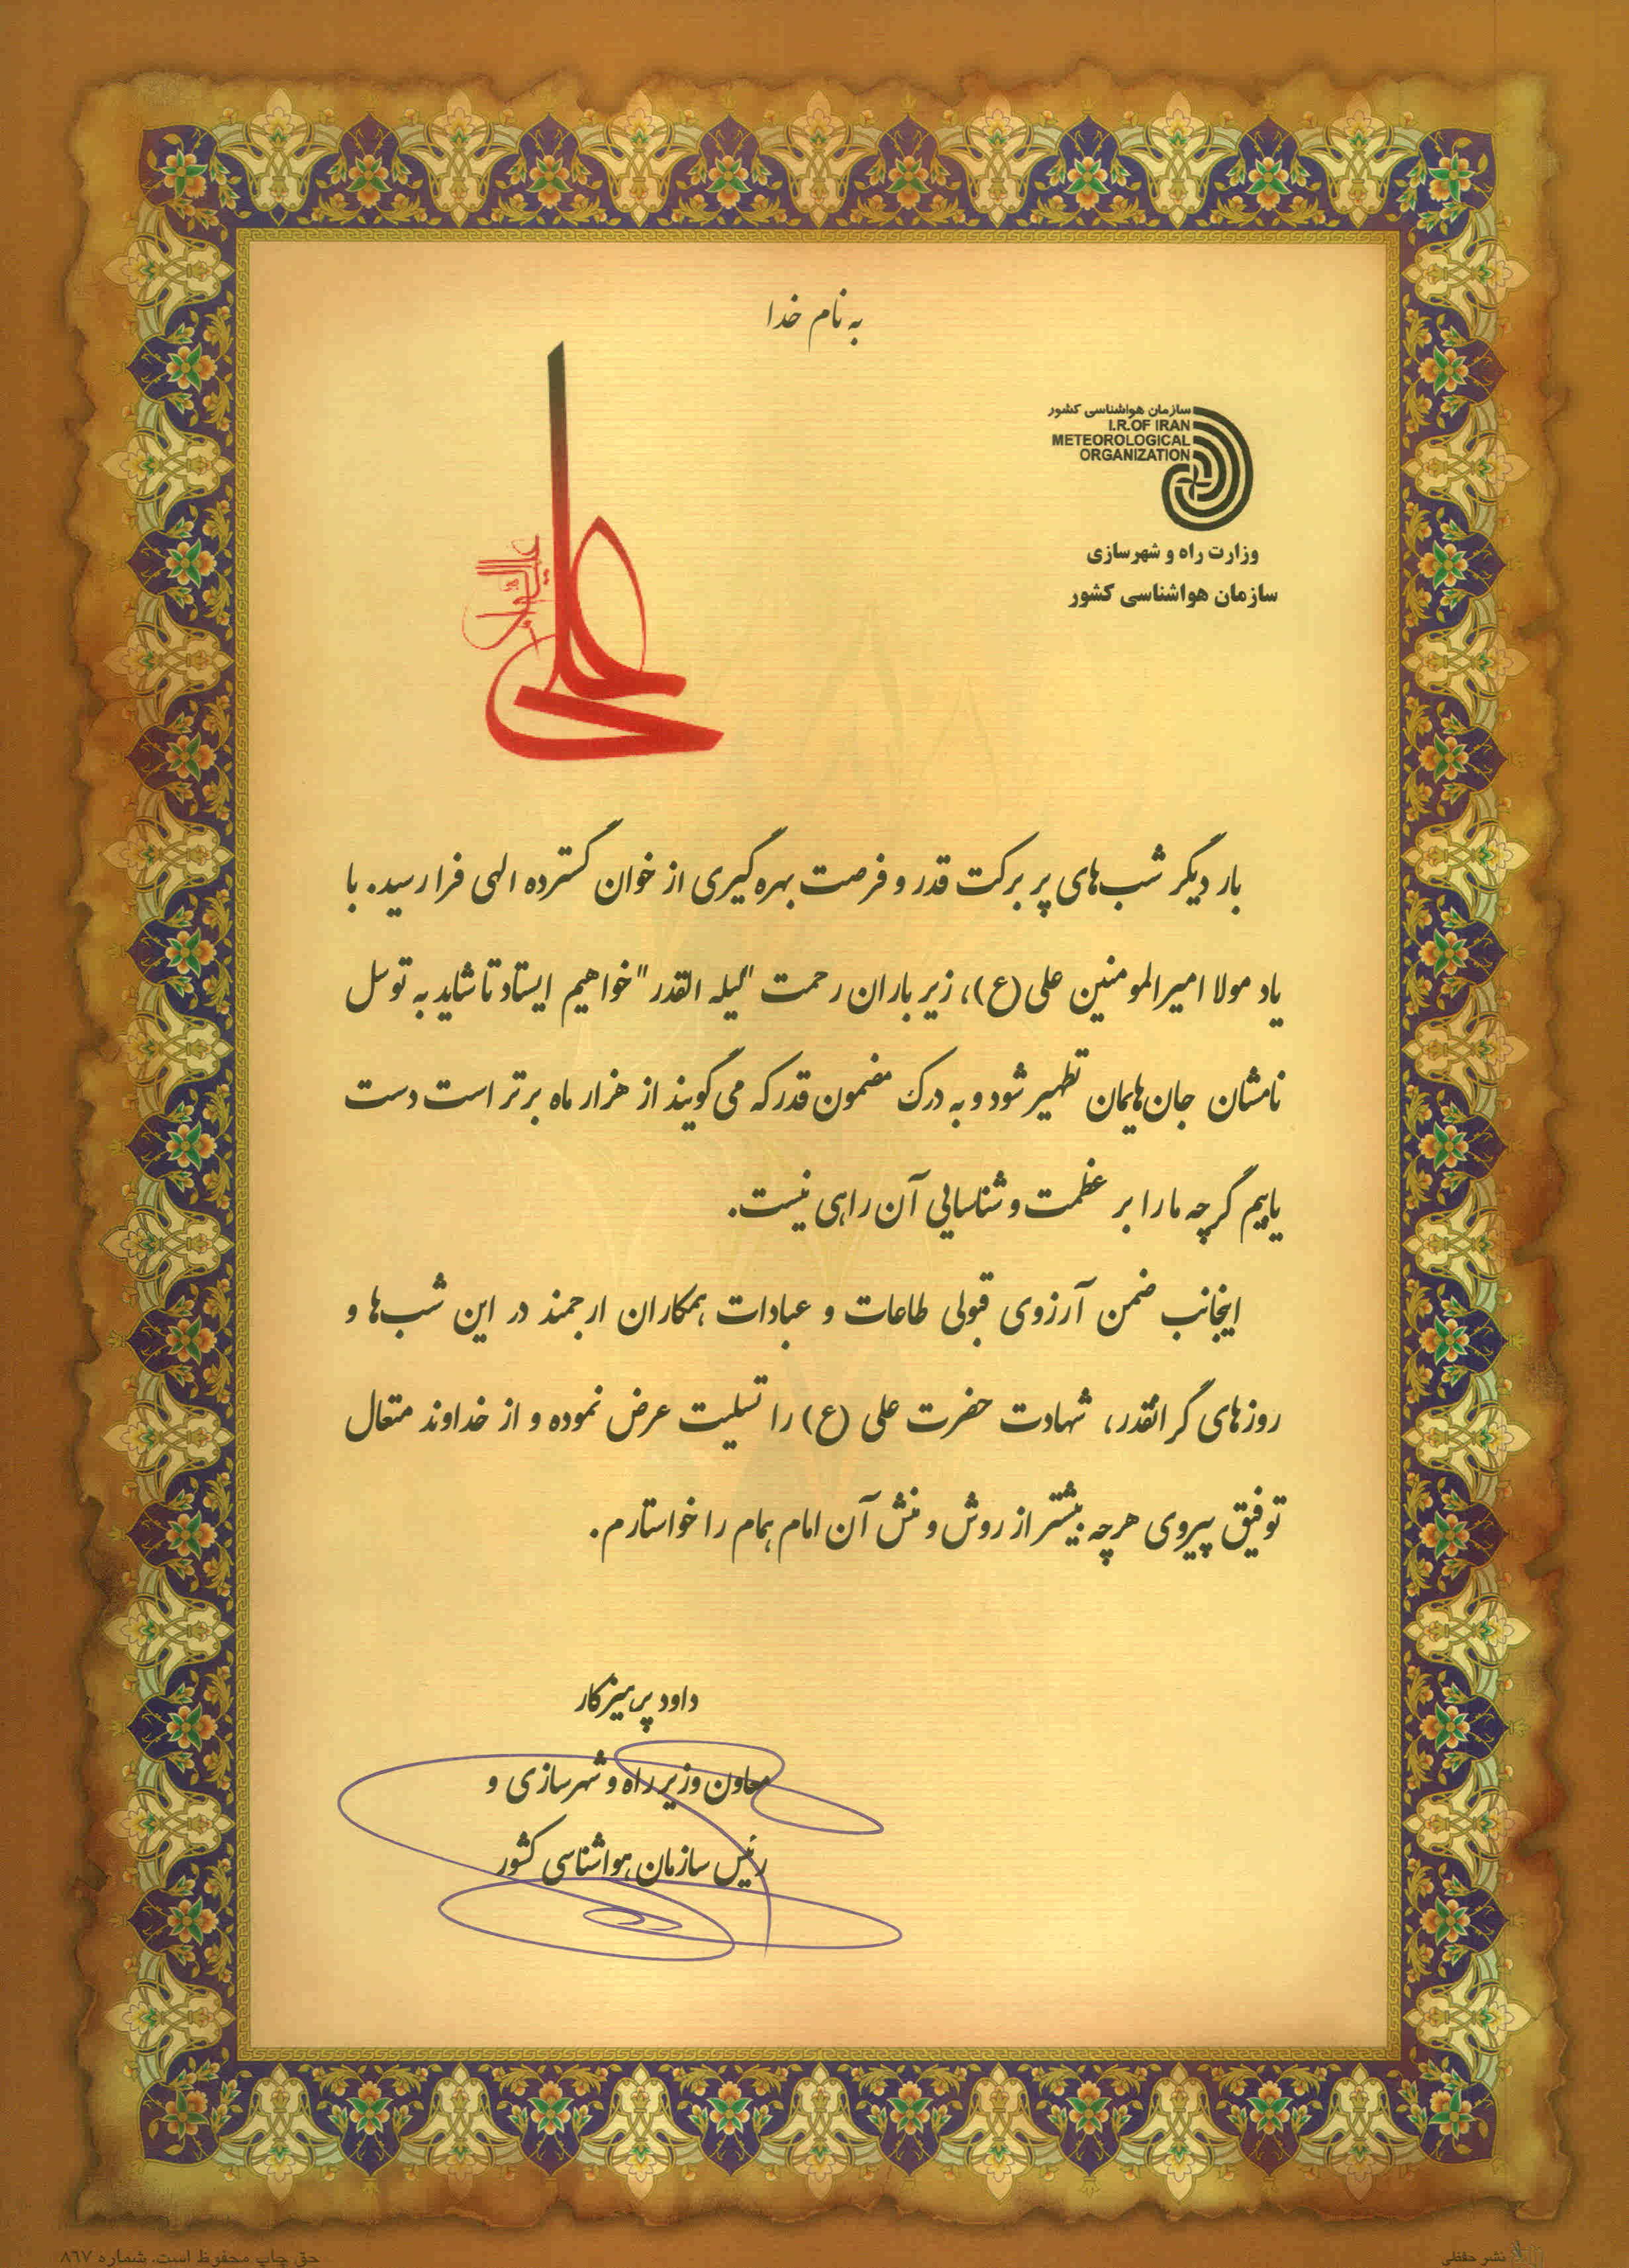 به نام خدا
سازمان هواشناسی کشور
I.R.OF IRAN
METEOROLOGICAL
ORGANIZATION
وزارت راه و شهرسازی
سازمان هواشناسی کشور
علی
علیه السلام
بار دیگر شب‌های پر برکت قدر و فرصت بهره گیری از خوان گسترده الهی فرا رسید. با
یاد مولا امیرالمومنین علی (ع)، زیر باران رحمت "لیله القدر" خواهیم ایستاد تا شاید به توسل
نامشان جان‌هایمان تطهیر شود و به درک مضمون قدر که می گویند از هزار ماه برتر است دست
یابیم گرچه ما را بر عظمت و شناسایی آن راهی نیست.
اینجانب ضمن آرزوی قبولی طاعات و عبادات همکاران ارجمند در این شب‌ها و
روزهای گرانقدر، شهادت حضرت علی (ع) را تسلیت عرض نموده و از خداوند متعال
توفیق پیروی هرچه بیشتر از روش و منش آن امام همام را خواستارم.
داود پرهیزکار
معاون وزیر راه و شهرسازی و
رئیس سازمان هواشناسی کشور
نشر حفظی
حق چاپ محفوظ است. شماره ۸۶۷